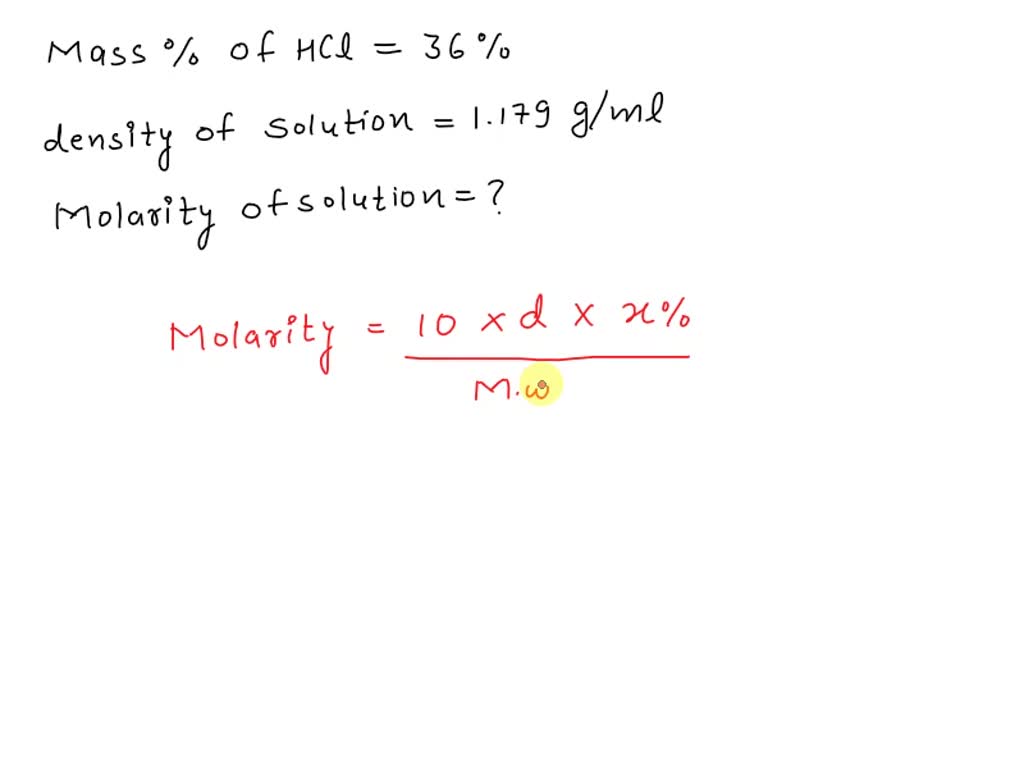 Mass % of HCl = 36%
density of solution = 1.179 g/ml
Molarity of solution = ?
Molarity = 10 × d × x%
M.w